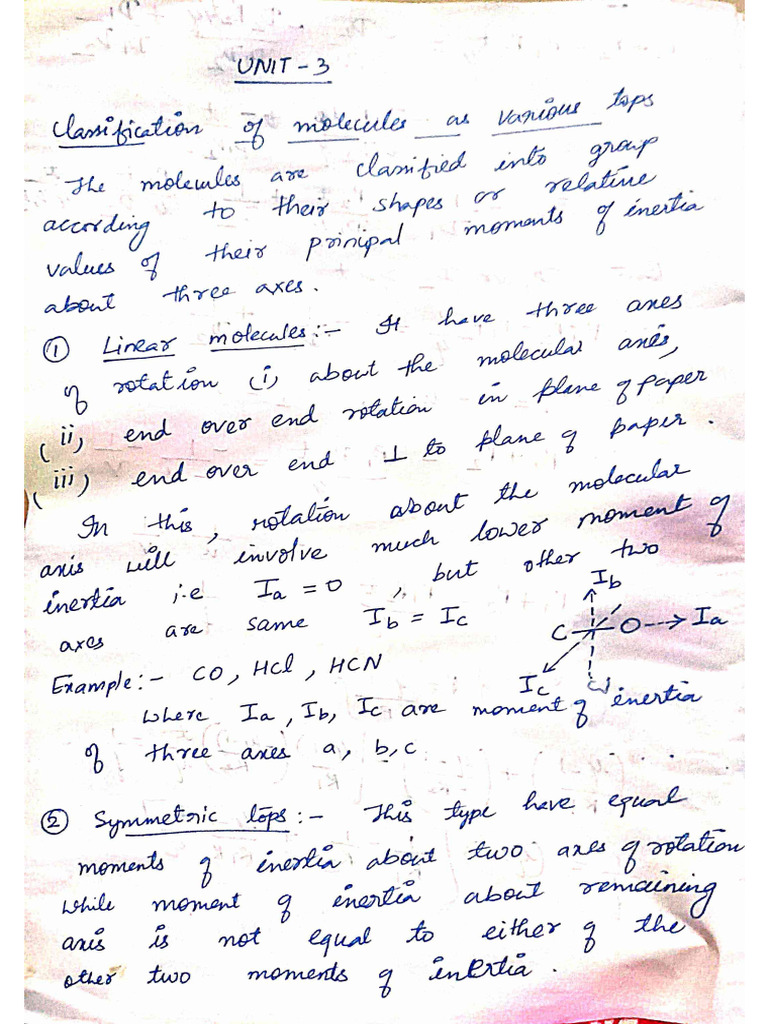 UNIT - 3
Classification of molecules as various tops
The molecules are classified into group
according to their shapes or relative
values of their prinipal moments of inertia
about three axes.
① Linear molecules:- It have three axes
of rotation (i) about the molecular axis,
(ii) end over end rotation in plane of paper
(iii) end over end ⊥ to plane of paper.
In this, rotation about the molecular
axis will involve much lower moment of
inertia i.e Ia = 0, but other two
axes are same Ib = Ic
Ib
C O Ia
Ic
Example:- CO, HCl, HCN
where Ia, Ib, Ic are moment of inertia
of three axes a, b, c
② Symmetric tops:- This type have equal
moments of inertia about two axes of rotation
while moment of inertia about remaining
axis is not equal to either of the
other two moments of inertia.